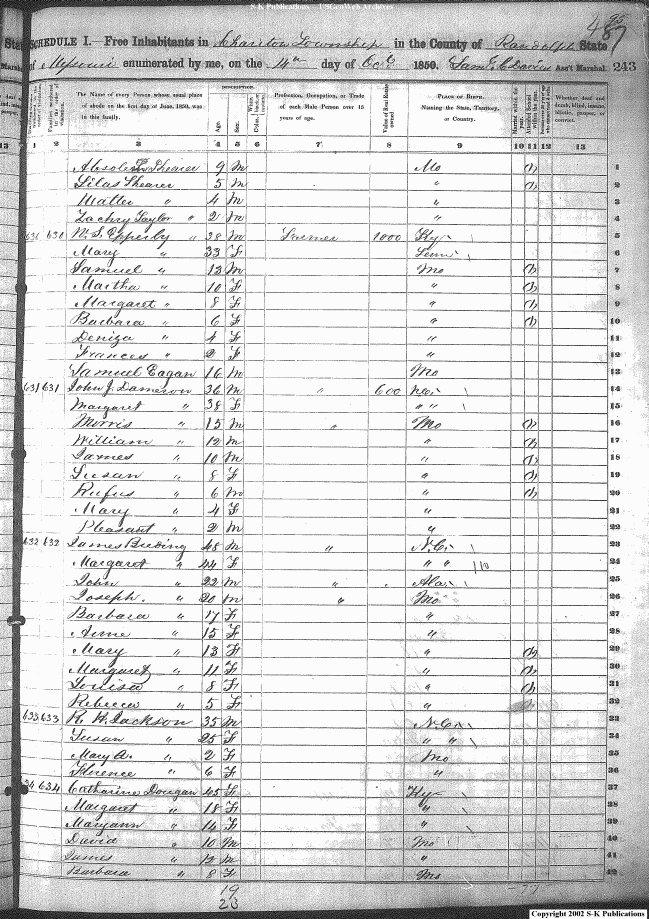 S-K Publications - USGenWeb Archives
95
487
SCHEDULE I.- Free Inhabitants in Chariton Township in the County of Randolph State
of Missouri enumerated by me, on the 14th day of Octr 1850. Saml C Davis Ass't Marshal. 243
The Name of every Person whose usual place of abode on the first day of June, 1850, was in this family.
DESCRIPTION.
Age.
Sex.
Profession, Occupation, or Trade of each Male Person over 15 years of age.
Value of Real Estate owned
PLACE OF BIRTH. Naming the State, Territory, or Country.
Whether deaf and dumb, blind, insane, idiotic, pauper, or convict.
1 2 3 4 5 6 7 8 9 10 11 12 13
Absolem Shearer 9 M Mo 1 1
Silas Shearer 5 M " 1 2
Walter " 4 M " 3
Zachry Taylor " 2 M " 4
630 630 W. S. Epperly 38 M Farmer 1000 Ky 5
Mary " 33 F Tenn 6
Samuel " 13 M Mo 1 7
Martha " 10 F " 1 8
Margaret " 8 F " 1 9
Barbara " 6 F " 1 10
Deniza " 4 F " 11
Frances " 2 F " 12
Samuel Eagan 16 M Mo 13
631 631 John J. Dameron 36 M " 600 14
Margaret " 38 F " " 15
Morris " 15 M " Mo 1 16
William " 12 M " 1 17
James " 10 M " 1 18
Susan " 8 F " 1 19
Rufus " 6 M " 1 20
Mary " 4 F " 21
Pleasant " 2 M " 22
632 632 James Breding 48 M " N.C. 23
Margaret " 44 F " " 24
John " 22 M " Ala 25
Joseph " 20 M " Mo 26
Barbara " 17 F " 27
Anne " 15 F " 28
Mary " 13 F " 1 29
Margaret " 11 F " 1 30
Louisa " 8 F " 1 31
Rebecca " 5 F " 32
633 633 R. H. Jackson 35 M N.C. 33
Susan " 25 F " " 34
Mary A. " 2 F Mo 35
Florence " 6 F " 36
634 Catharine Dougan 45 F Ky 37
Margaret " 18 F " 38
Maryann " 14 F " 39
David " 10 M Mo 40
James " 12 M " 41
Barbara " 8 F Mo 42
19
23
Copyright 2002 S-K Publications